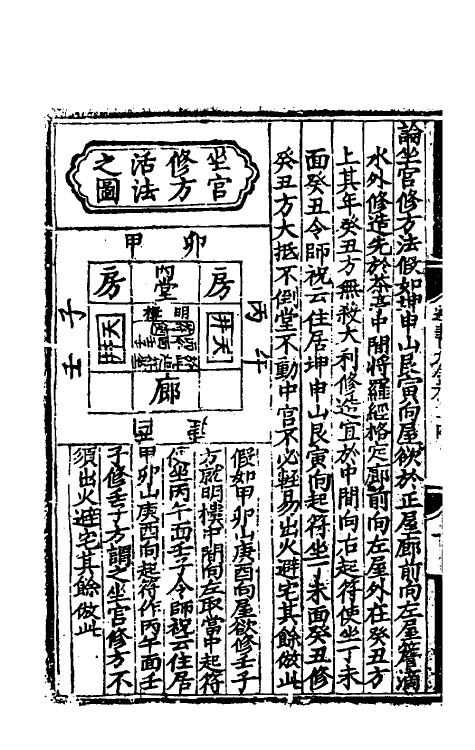 論坐宫修方法假如坤申山艮寅向屋欲於正屋廊前向左屋簷滴
水外修造先於茶亭中間將羅經格定廊前向左屋外在癸丑方
上其年癸丑方無殺大利修造宜於中間向右起符使坐丁未
面癸丑令師祝云住居坤申山艮寅向起符坐丁未面癸丑修
癸丑方大抵不倒堂不動中宫不必輕易出火避宅其餘倣此
坐宫
修方
活法
之圖
卯 甲
房 內堂 房
明樓
天井 天井
廊
丙 午
子 壬
庚 酉
假如甲卯山庚酉向屋欲修壬子
方就明樓中間向左取當中起符
使坐丙午面壬子令師祝云住居
甲卯山庚酉向起符作丙午面壬
子修壬子方謂之坐宫修方不
須出火避宅其餘倣此